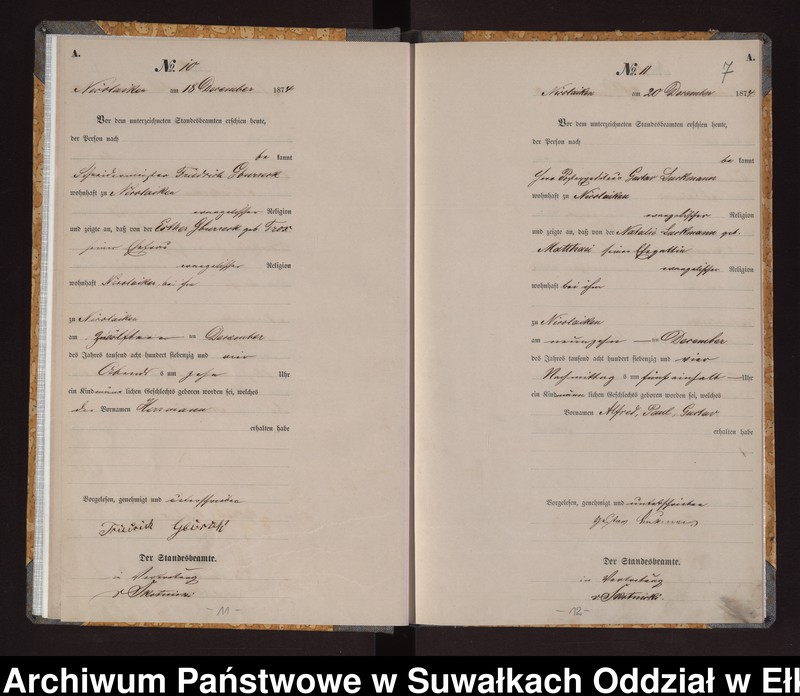 A.
No. 10
Nicolaiken am 18 December 1874
Vor dem unterzeichneten Standesbeamten erschien heute,
der Person nach
be kannt
Friedrich
wohnhaft zu Nicolaiken
evangelischer Religion
und zeigte an, daß von der Esther geb.
seiner Ehefrau
evangelischer Religion
wohnhaft Nicolaiken, bei ihm
zu Nicolaiken
am zwölften December
des Jahres tausend acht hundert siebenzig und vier
Abends um zehn Uhr
ein Kind männlichen Geschlechts geboren worden sei, welches
den Vornamen Herrmann
erhalten habe
Vorgelesen, genehmigt und unterschrieben
Friedrich
Der Standesbeamte.
in Vertretung
v Skotnicki
- 11 -
A.
7
No. 11
Nicolaiken am 20 December 1874
Vor dem unterzeichneten Standesbeamten erschien heute,
der Person nach
be kannt
Gustav Luckmann
wohnhaft zu Nicolaiken
evangelischer Religion
und zeigte an, daß von der Natalie Luckmann geb.
seiner Ehegattin
evangelischer Religion
wohnhaft bei ihm
zu Nicolaiken
am neunzehn ten December
des Jahres tausend acht hundert siebenzig und vier
Nachmittag um fünf einhalb Uhr
ein Kind männlichen Geschlechts geboren worden sei, welches
Vornamen Alfred, Paul, Gustav
erhalten habe
Vorgelesen, genehmigt und unterschrieben
Gustav
Der Standesbeamte.
in Vertretung
v Skotnicki.
- 12 -
Archiwum Państwowe w Suwałkach Oddział w Eł